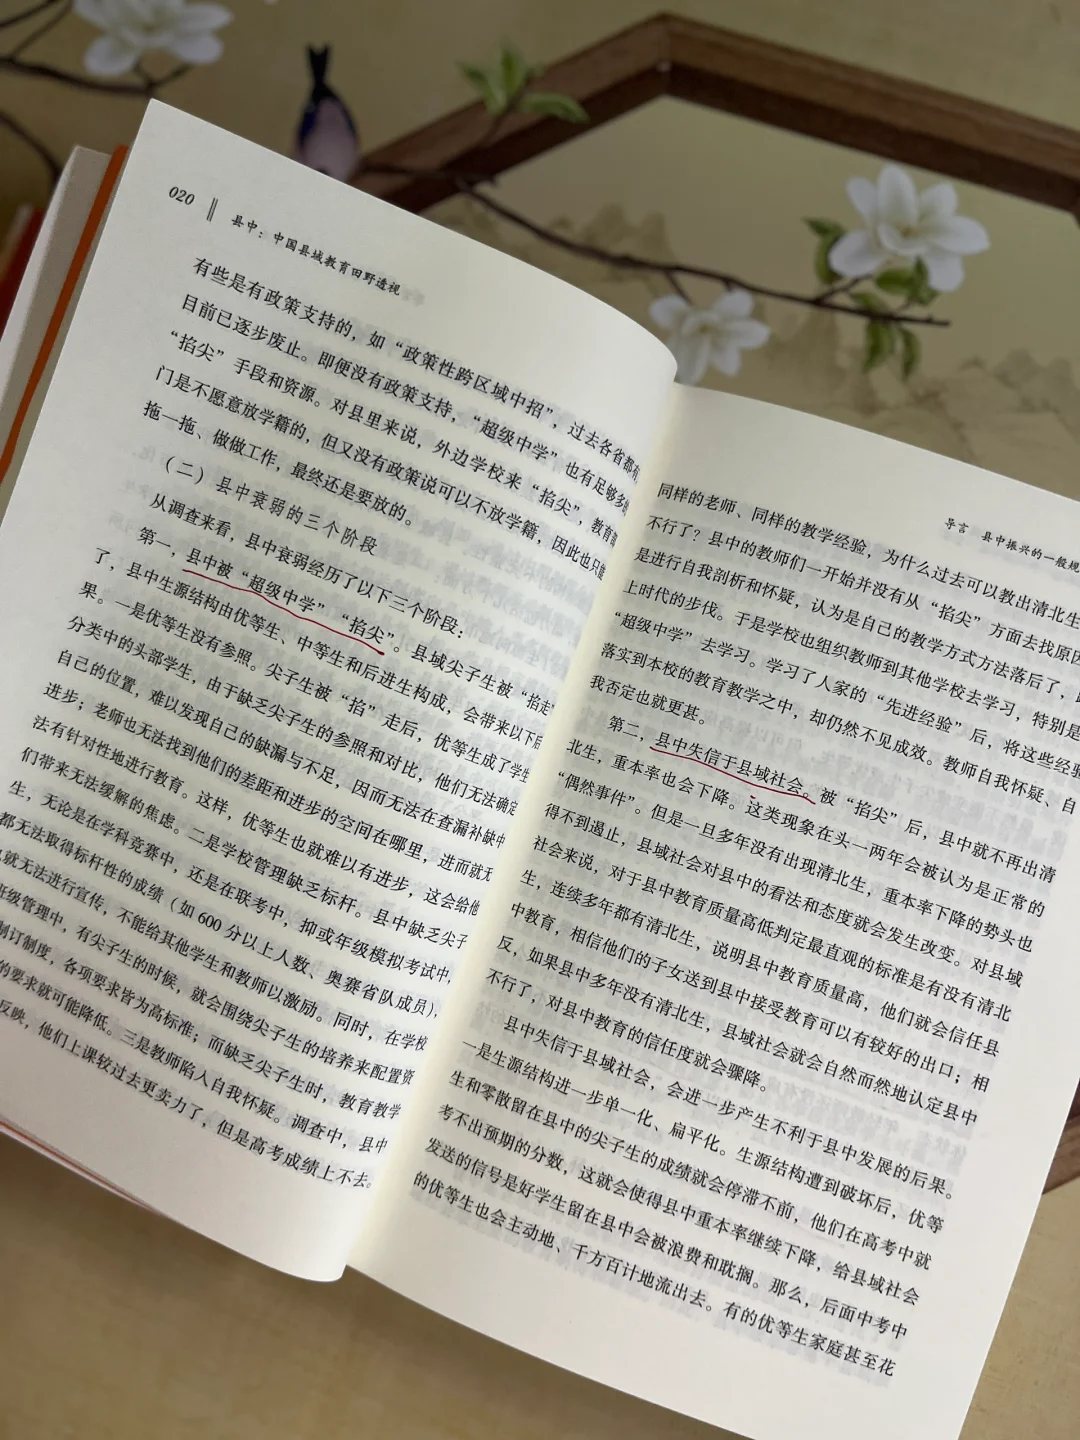 020 县中：中国县域教育田野透视
有些是有政策支持的，如“政策性跨区域中招”，过去各省都有
目前已逐步废止。即便没有政策支持，“超级中学”也有足够多的
“掐尖”手段和资源。对县里来说，外边学校来“掐尖”，教育部
门是不愿意放学籍的，但又没有政策说可以不放学籍，因此也只能
拖一拖、做做工作，最终还是要放的。
（二）县中衰弱的三个阶段
从调查来看，县中衰弱经历了以下三个阶段：
第一，县中被“超级中学”“掐尖”。县域尖子生被“掐走”
了，县中生源结构由优等生、中等生和后进生构成，会带来以下后
果。一是优等生没有参照。尖子生被“掐”走后，优等生成了学生
分类中的头部学生，由于缺乏尖子生的参照和对比，他们无法确定
自己的位置，难以发现自己的缺漏与不足，因而无法在查漏补缺中
进步；老师也无法找到他们的差距和进步的空间在哪里，进而就无
法有针对性地进行教育。这样，优等生也就难以有进步，这会给他
们带来无法缓解的焦虑。二是学校管理缺乏标杆。县中缺乏尖子
生，无论是在学科竞赛中，还是在联考中，抑或年级模拟考试中，
都无法取得标杆性的成绩（如600分以上人数、奥赛省队成员），
也就无法进行宣传，不能给其他学生和教师以激励。同时，在学校
班级管理中，有尖子生的时候，就会围绕尖子生的培养来配置资
制订制度，各项要求皆为高标准；而缺乏尖子生时，教育教学
的要求就可能降低。三是教师陷入自我怀疑。调查中，县中
反映，他们上课较过去更卖力了，但是高考成绩上不去。
导言 县中振兴的一般规
同样的老师、同样的教学经验，为什么过去可以教出清北生
不行了？县中的教师们一开始并没有从“掐尖”方面去找原因
是进行自我剖析和怀疑，认为是自己的教学方式方法落后了，
上时代的步伐。于是学校也组织教师到其他学校去学习，特别是
“超级中学”去学习。学习了人家的“先进经验”后，将这些经验
落实到本校的教育教学之中，却仍然不见成效。教师自我怀疑、自
我否定也就更甚。
第二，县中失信于县域社会。被“掐尖”后，县中就不再出清
北生，重本率也会下降。这类现象在头一两年会被认为是正常的
“偶然事件”。但是一旦多年没有出现清北生，重本率下降的势头也
得不到遏止，县域社会对县中的看法和态度就会发生改变。对县域
社会来说，对于县中教育质量高低判定最直观的标准是有没有清北
生，连续多年都有清北生，说明县中教育质量高，他们就会信任县
中教育，相信他们的子女送到县中接受教育可以有较好的出口；相
反，如果县中多年没有清北生，县域社会就会自然而然地认定县中
不行了，对县中教育的信任度就会骤降。
县中失信于县域社会，会进一步产生不利于县中发展的后果。
一是生源结构进一步单一化、扁平化。生源结构遭到破坏后，优等
生和零散留在县中的尖子生的成绩就会停滞不前，他们在高考中就
考不出预期的分数，这就会使得县中重本率继续下降，给县域社会
发送的信号是好学生留在县中会被浪费和耽搁。那么，后面中考中
的优等生也会主动地、千方百计地流出去。有的优等生家庭甚至花